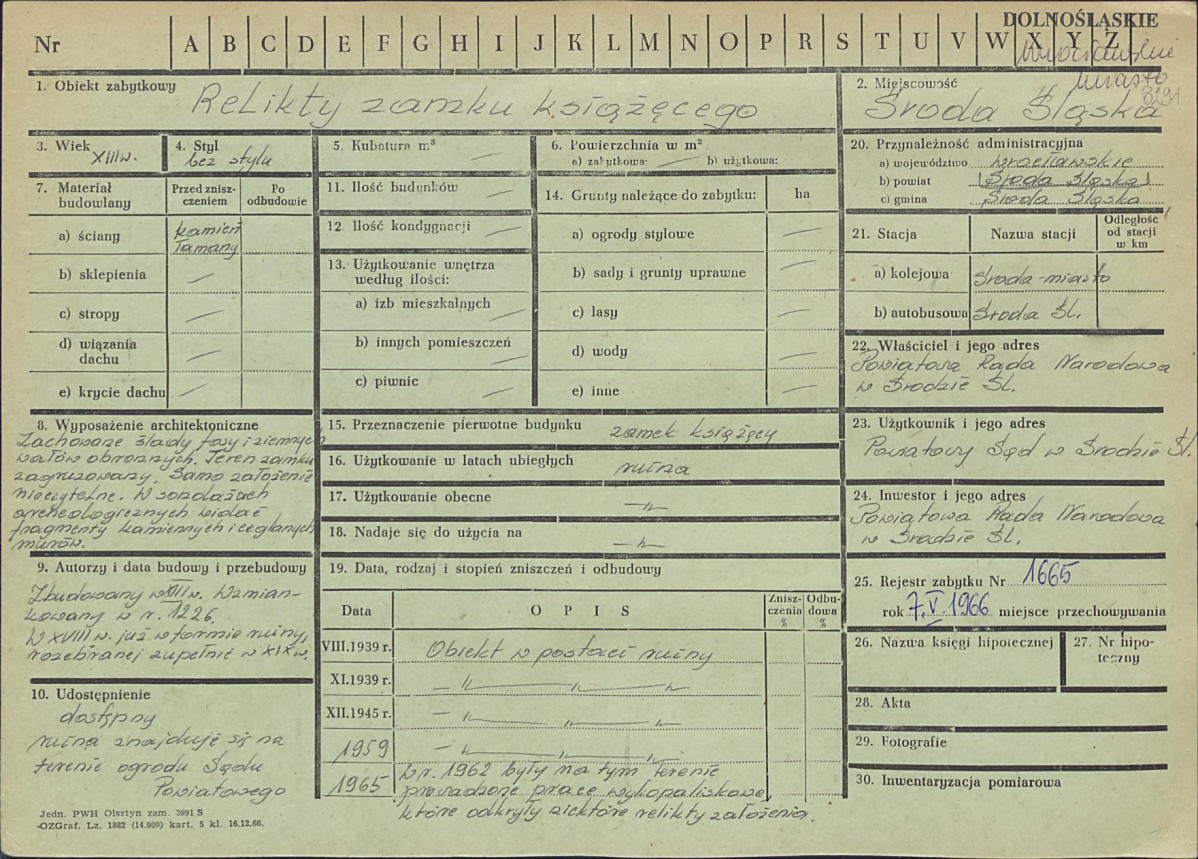 DOLNOŚLĄSKIE
Nr A B C D E F G H I J K L M N O P R S T U V W X Y Z
wrocławskie
miasto
8291
1. Obiekt zabytkowy
Relikty zamku książęcego
2. Miejscowość
Środa Śląska
3. Wiek
XIII w.
4. Styl
bez stylu
5. Kubatura m³ —
6. Powierzchnia w m²
a) zabytkowa: — b) użytkowa:
7. Materiał budowlany
Przed zniszczeniem
Po odbudowie
a) ściany
kamień
łamany
b) sklepienia —
c) stropy —
d) wiązania
dachu —
e) krycie dachu —
8. Wyposażenie architektoniczne
Zachowane ślady fosy i ziemnych
wałów obronnych. Teren zamku
zagruzowany. Samo założenie
nieczytelne. W sondażach
archeologicznych widać
fragmenty kamiennych i ceglanych
murów.
9. Autorzy i data budowy i przebudowy
Zbudowany w XIII w. Wzmian-
kowany w r. 1226.
W XVIII w. już w formie ruiny,
rozebranej zupełnie w XIX w.
10. Udostępnienie
dostępny
ruina znajduje się na
terenie ogrodu Sądu
Powiatowego
Jedn. PWH Olsztyn zam. 3991 S
OZGraf. Lz. 1882 (14.000) kart. 5 kl. 16.12.66.
11. Ilość budynków —
12. Ilość kondygnacji —
13. Użytkowanie wnętrza
według ilości:
a) izb mieszkalnych —
b) innych pomieszczeń —
c) piwnic —
14. Grunty należące do zabytku: ha
a) ogrody stylowe —
b) sady i grunty uprawne —
c) lasy —
d) wody —
e) inne —
15. Przeznaczenie pierwotne budynku zamek książęcy
16. Użytkowanie w latach ubiegłych ruina
17. Użytkowanie obecne —"—
18. Nadaje się do użycia na —"—
19. Data, rodzaj i stopień zniszczeń i odbudowy
Data OPIS Zniszczenia % Odbudowa %
VIII.1939 r. Obiekt w postaci ruiny
XI.1939 r. —"—"—"—
XII.1945 r. —"—"—"—
1959 —"—"—"—
1965 W r. 1962 były na tym terenie
prowadzone prace wykopaliskowe,
które odkryły niektóre relikty założenia.
20. Przynależność administracyjna
a) województwo wrocławskie
b) powiat Środa Śląska
c) gmina Środa Śląska
21. Stacja Nazwa stacji Odległość od stacji w km
a) kolejowa Środa-miasto
b) autobusowa Środa Śl.
22. Właściciel i jego adres
Powiatowa Rada Narodowa
w Środzie Śl.
23. Użytkownik i jego adres
Powiatowy Sąd w Środzie Śl.
24. Inwestor i jego adres
Powiatowa Rada Narodowa
w Środzie Śl.
25. Rejestr zabytku Nr 1665
rok 7.V.1966 miejsce przechowywania
26. Nazwa księgi hipotecznej
27. Nr hipoteczny
28. Akta
29. Fotografie
30. Inwentaryzacja pomiarowa